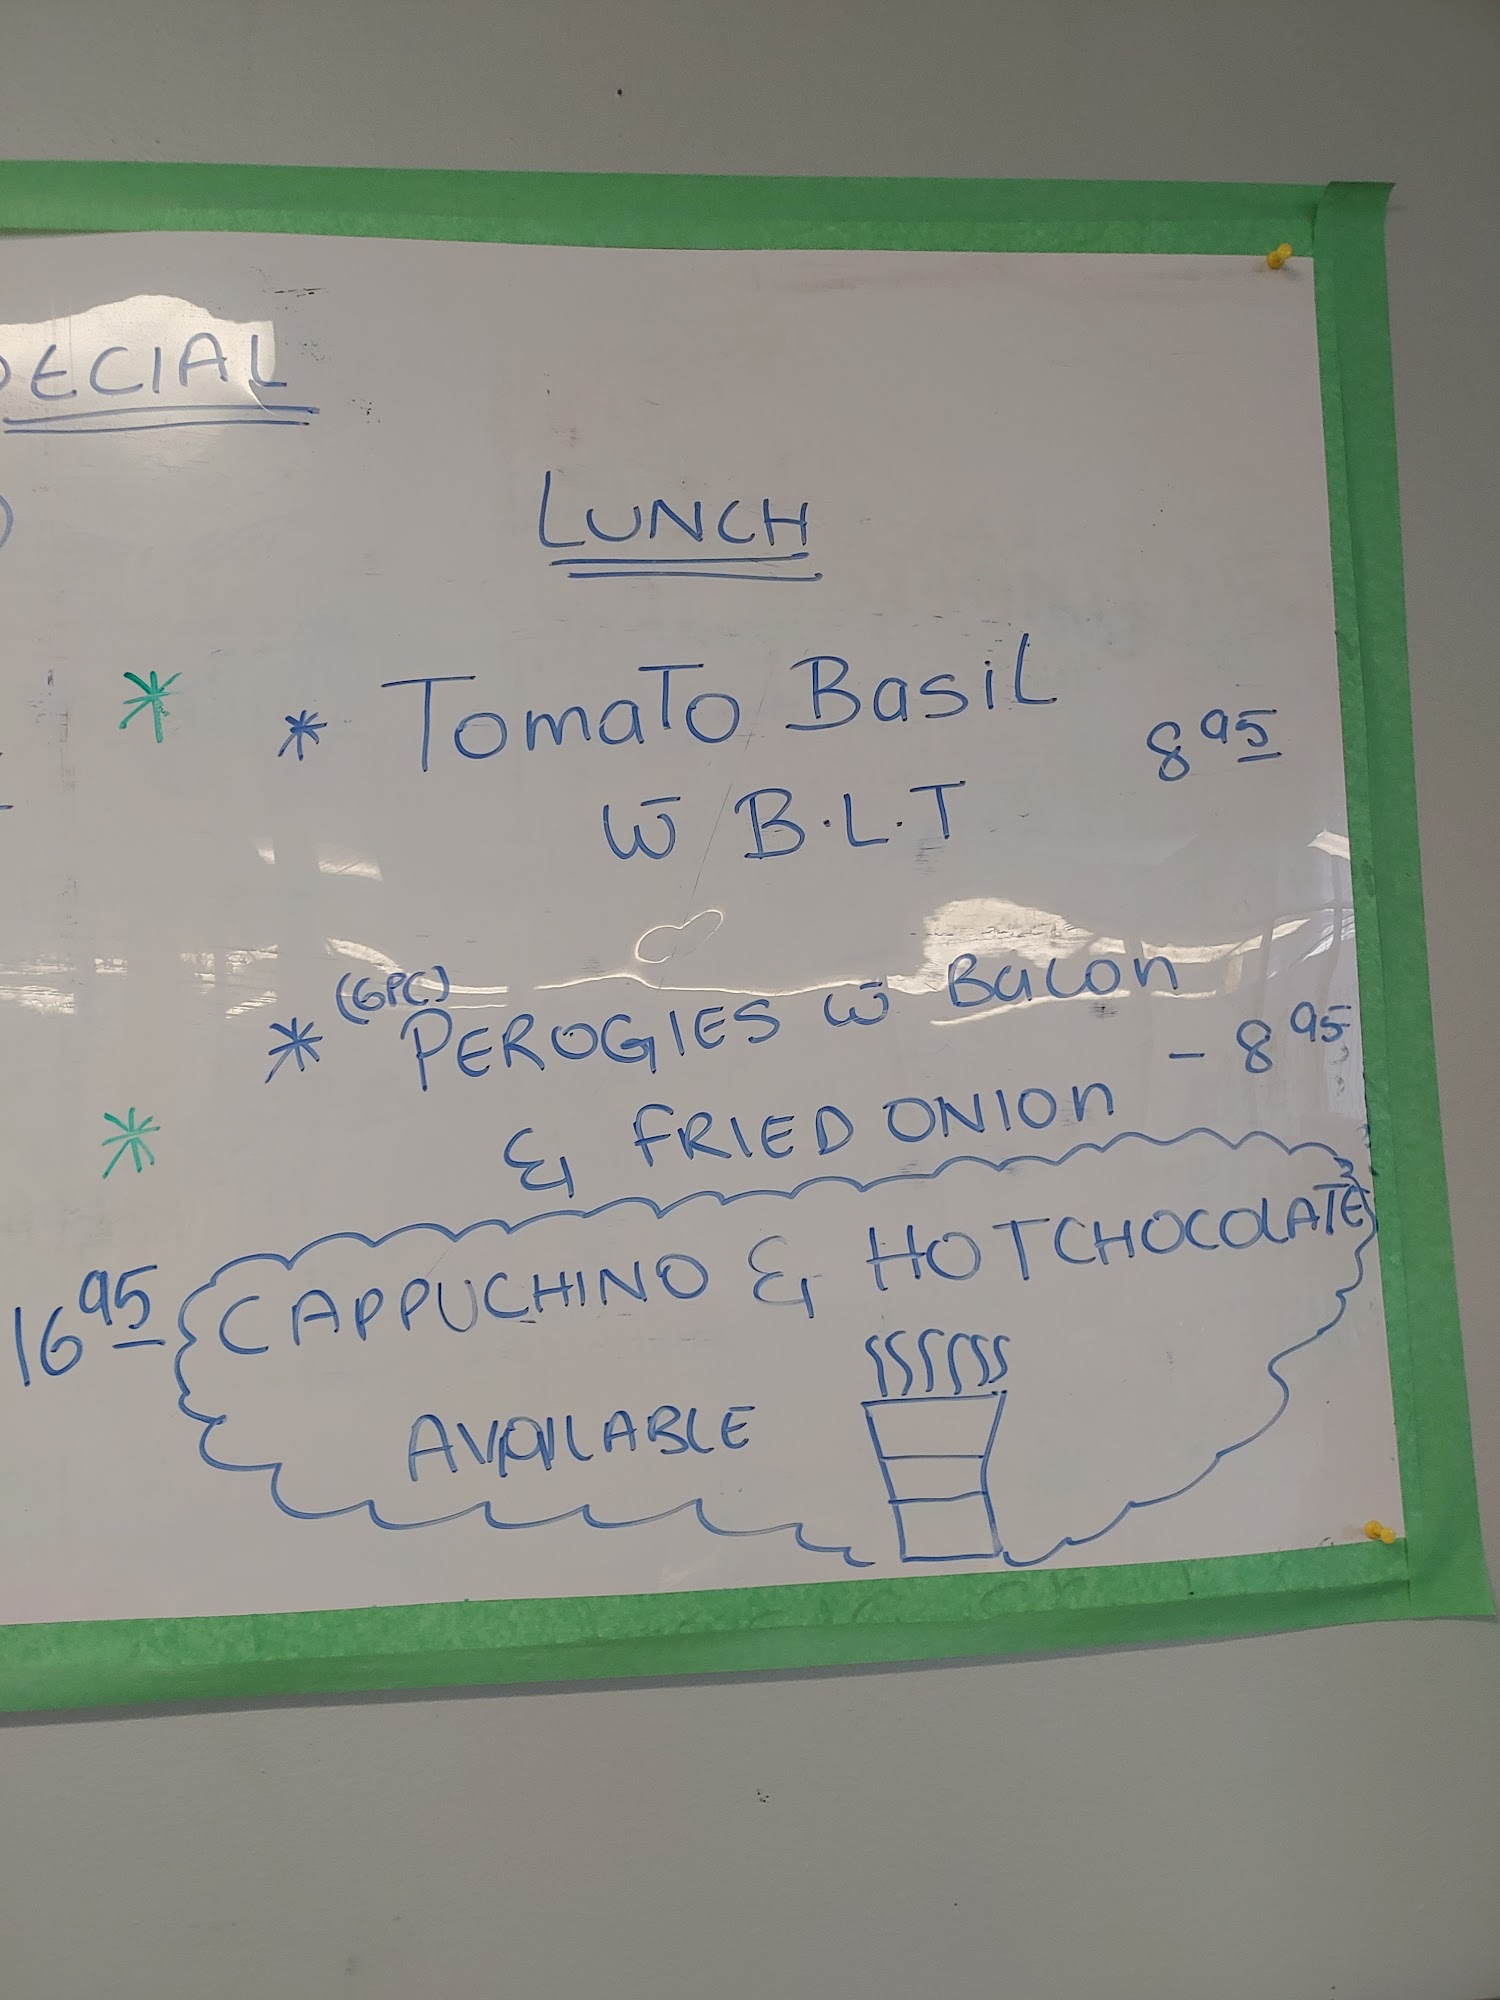 ECIAL
LUNCH
* Tomato Basil
8 95
w̄ B.L.T
(6PC)
* PEROGIES w̄ Bacon
- 8 95
& FRIED ONION
CAPPUCHINO & HOTCHOCOLATE
16 95
AVAILABLE